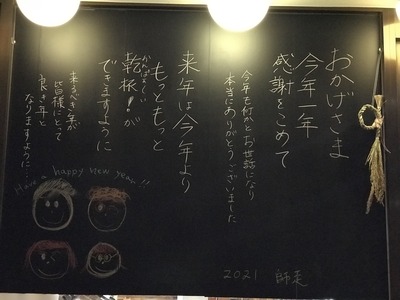 おかげさま
今年一年
感謝をこめて
今年も何かとお世話になり
本当にありがとうございました
来年は今年より
もっともっと
かんぱーい
乾杯!が
できますように
来るべき年が
皆様にとって
良き年と
なりますように…
Have a happy new year!!
2021 師走